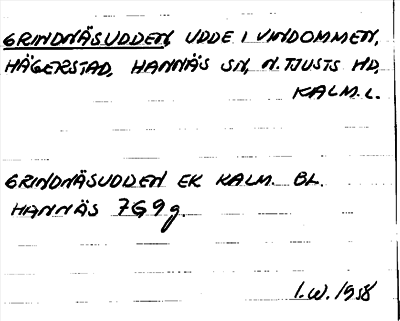 GRINDNÄSUDDEN, UDDE I VINDOMMEN,
HÄGERSTAD, HANNÄS SN, N. TJUSTS HD,
KALM. L.
GRINDNÄSUDDEN EK KALM. BL.
HANNÄS 7G9g.
I.W. 1958